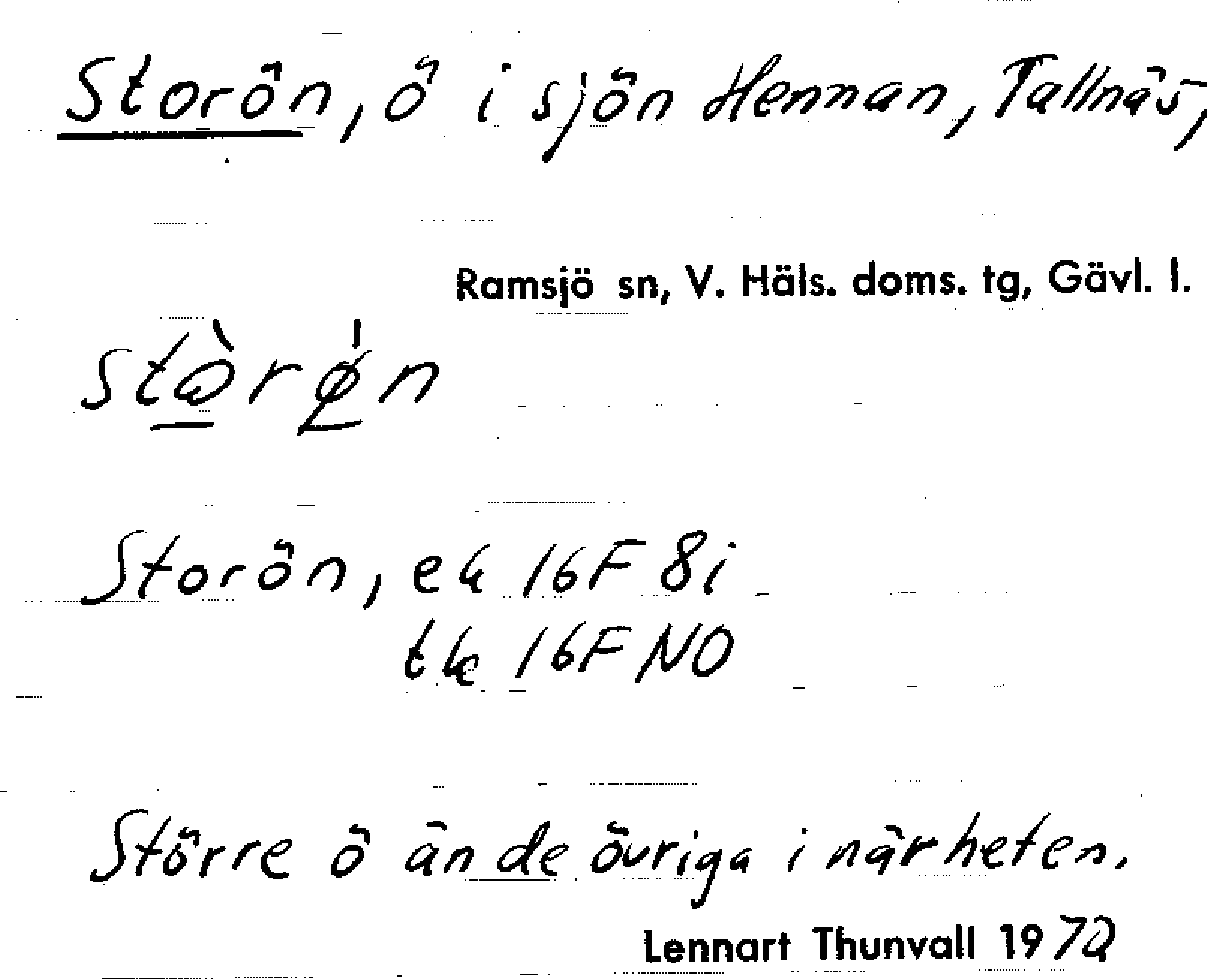 Storön, ö i sjön Hennan, Tallnäs,
Ramsjö sn, V. Häls. doms. tg, Gävl. l.
Storön, ek 16F 8i
tk 16F NO
Större ö än de övriga i närheten.
Lennart Thunvall 1972